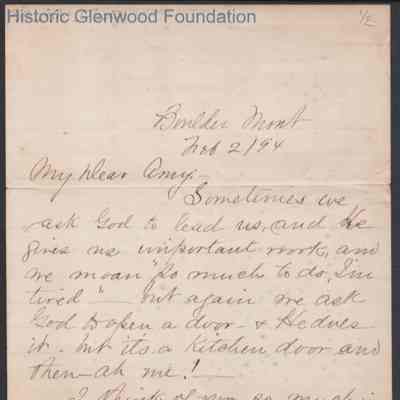 Historic Glenwood Foundation
1/2
Boulder Mont
Feb 2/94
My Dear Amy:—
Sometimes we
ask God to lead us, and He
gives us important work, and
we moan "So much to do, I'm
tired" — but again we ask
God to open a door - & He does
it - but it's a kitchen door and
then - ah me! —
I think of you so much